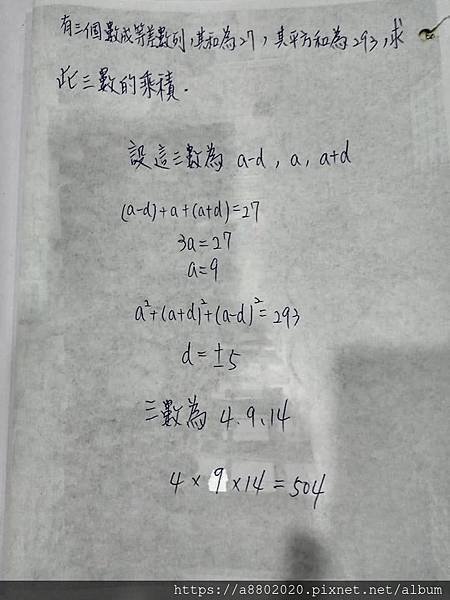 有三個數成等差數列，其和為27，其平方和為293，求
此三數的乘積．
設這三數為 a-d , a, a+d
(a-d)+a+(a+d)=27
3a=27
a=9
a²+(a+d)²+(a-d)²=293
d=±5
三數為 4、9、14
4×9×14=504
https://a8802020.pixnet.net/album